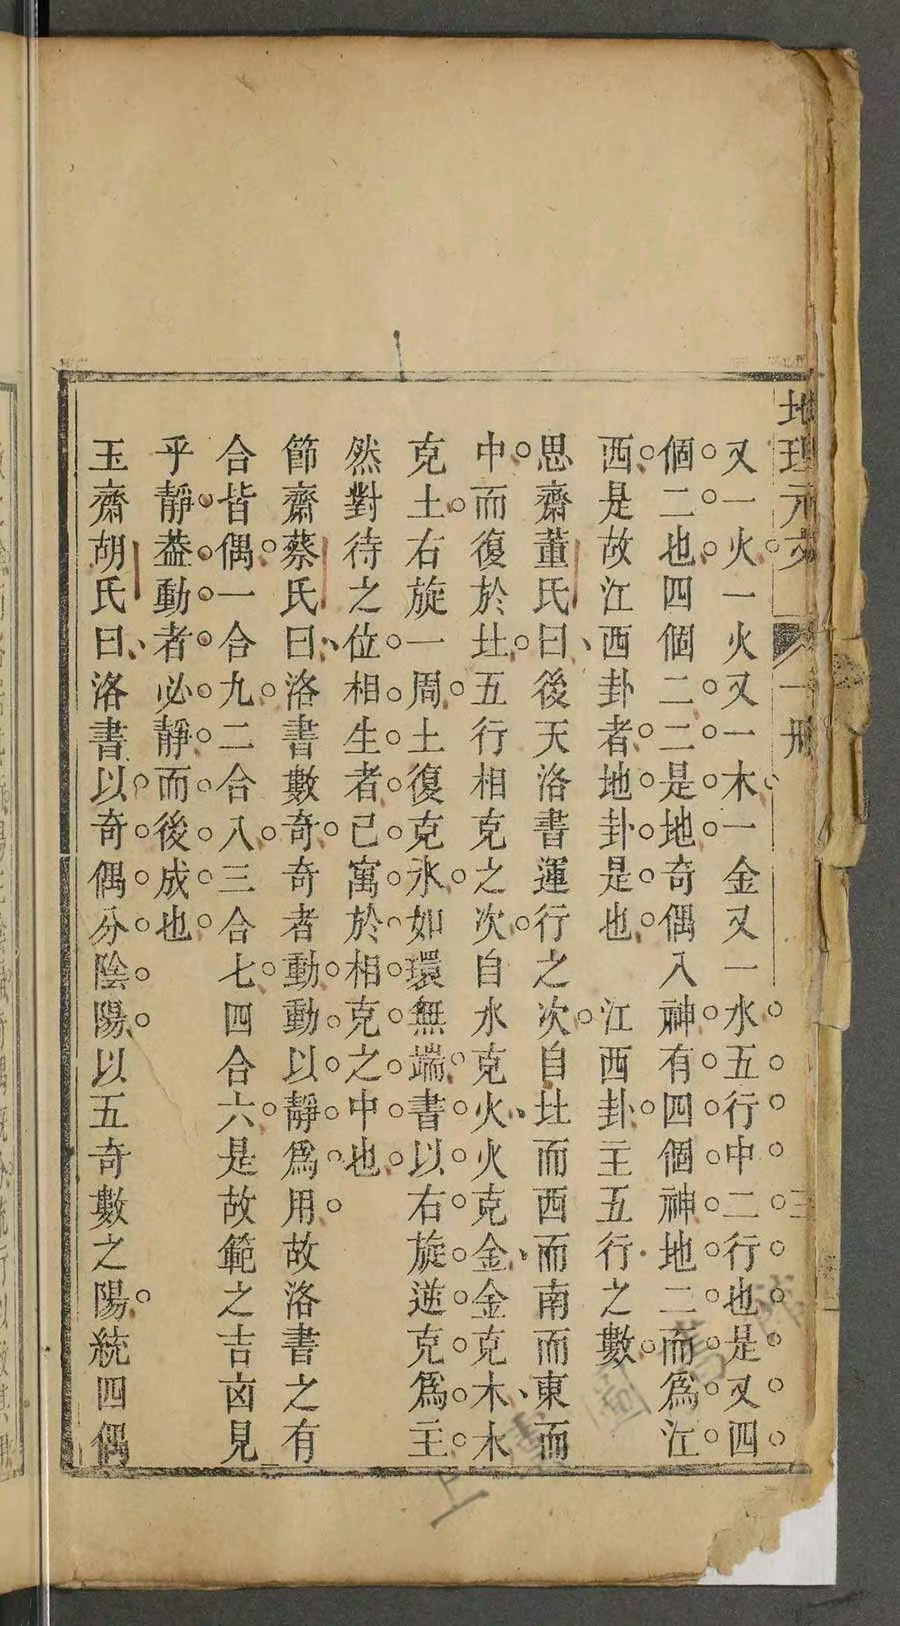 地理元文
一冊
三
又一火一火又一木一金又一水五行中二行也是又四
個二也四個二二是地奇偶入神有四個神地二而爲江
西是故江西卦者地卦是也 江西卦主五行之數
思齋董氏曰後天洛書運行之次自𡊣而西而南而東而
中而復於𡊣五行相克之次自水克火火克金金克木木
克土右旋一周土復克水如環無端書以右旋逆克爲主
然對待之位相生者已寓於相克之中也
節齋蔡氏曰洛書數奇奇者動動以靜爲用故洛書之有
合皆偶一合九二合八三合七四合六是故範之吉㐫見
乎靜葢動者必靜而後成也
玉齋胡氏曰洛書以奇偶分陰陽以五奇數之陽統四偶
上 圖書